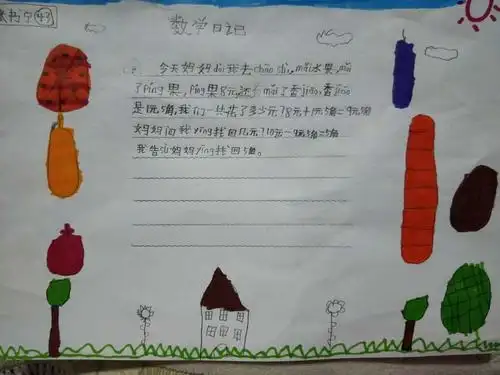 书宁43
数学日记
今天妈妈dài我去chāo shì,mǎi水果,mǎi
了píng果,píng果8元,还 mǎi了香jiāo,香jiāo
是1元5角,我们一共花了多少元?8元+1元5角=9元5角
妈妈问我yīng找回几元?10元-9元5角=5角
我告sù妈妈yīng找回5角。